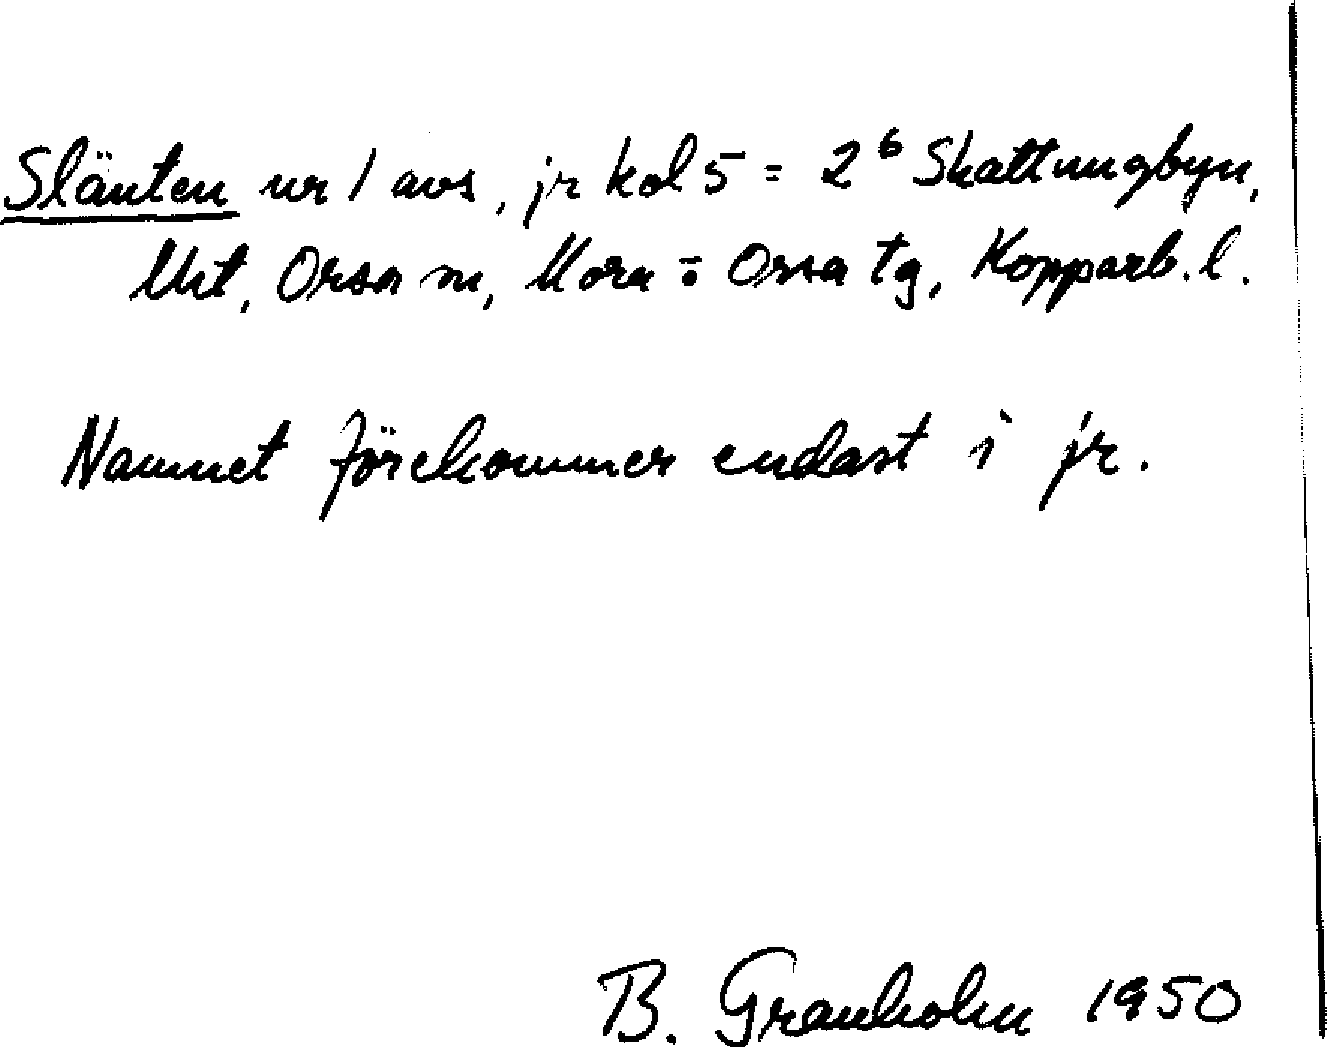 Slänten nr 1 avs, jr kol 5 = 2⁶ Skattungbyn,
Orsa sn, Mora o Orsa tg, Kopparb. l.
Namnet förekommer endast i jr.
B. Granholm 1950